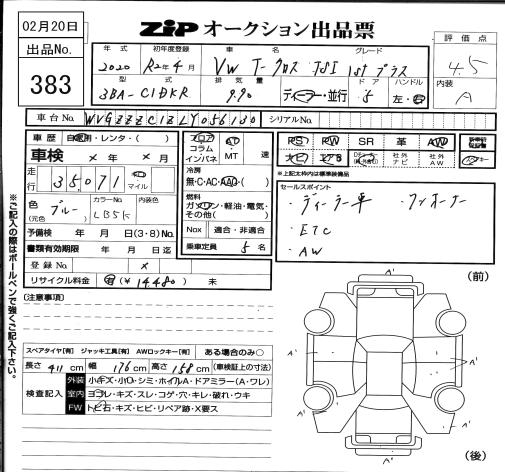 02月20日
ZIP オークション出品票
出品No.
383
評価点
4.5
内装
A
年式 初年度登録 車名 グレード
2020 R2年4月 VW T-クロス TSI 1stプラス
型式 排気量 ドア ハンドル
3BA-C1DKR 990 ディーラー・並行 5 左・右
車台No. WVGZZZC1ZLY056130 シリアルNo.
車歴 自家用・レンタ・( )
車検 × 年 × 月
走行 35,071 km マイル
色 (元色) ブルー カラーNo. LB5K 内装色
予備検 年 月 日(3・8)No.
書類有効期限 年 月 日迄
登録No. ×
リサイクル料金 有(¥14480) 未
フロア コラム インパネ
AT MT 速
冷房 無・C・AC・AAC・( )
燃料 ガソリン・軽油・電気・その他( )
Nox 適合・非適合
乗車定員 5 名
PS PW SR 革 AW
ナビ エアB 社外ナビ 社外AW
※上記太枠内は標準装備品
セールスポイント
・ディーラー車 ・ワンオーナー
・ETC
・AW
※ご記入の際はボールペンで強くご記入下さい。
(注意事項)
スペアタイヤ[有] ジャッキ工具[有] AWロックキー[有] ある場合のみ○
長さ 411 cm 幅 176 cm 高さ 158 cm (車検証上の寸法)
検査記入
外装 小キズ・小凹・シミ・ホイルA・ドアミラー(A・ワレ)
室内 ヨゴレ・キズ・スレ・コゲ・穴・キレ・破れ・ウキ
FW トビ石・キズ・ヒビ・リペア跡・X要ス
(前)
A' A' A' A' A' A'
(後)